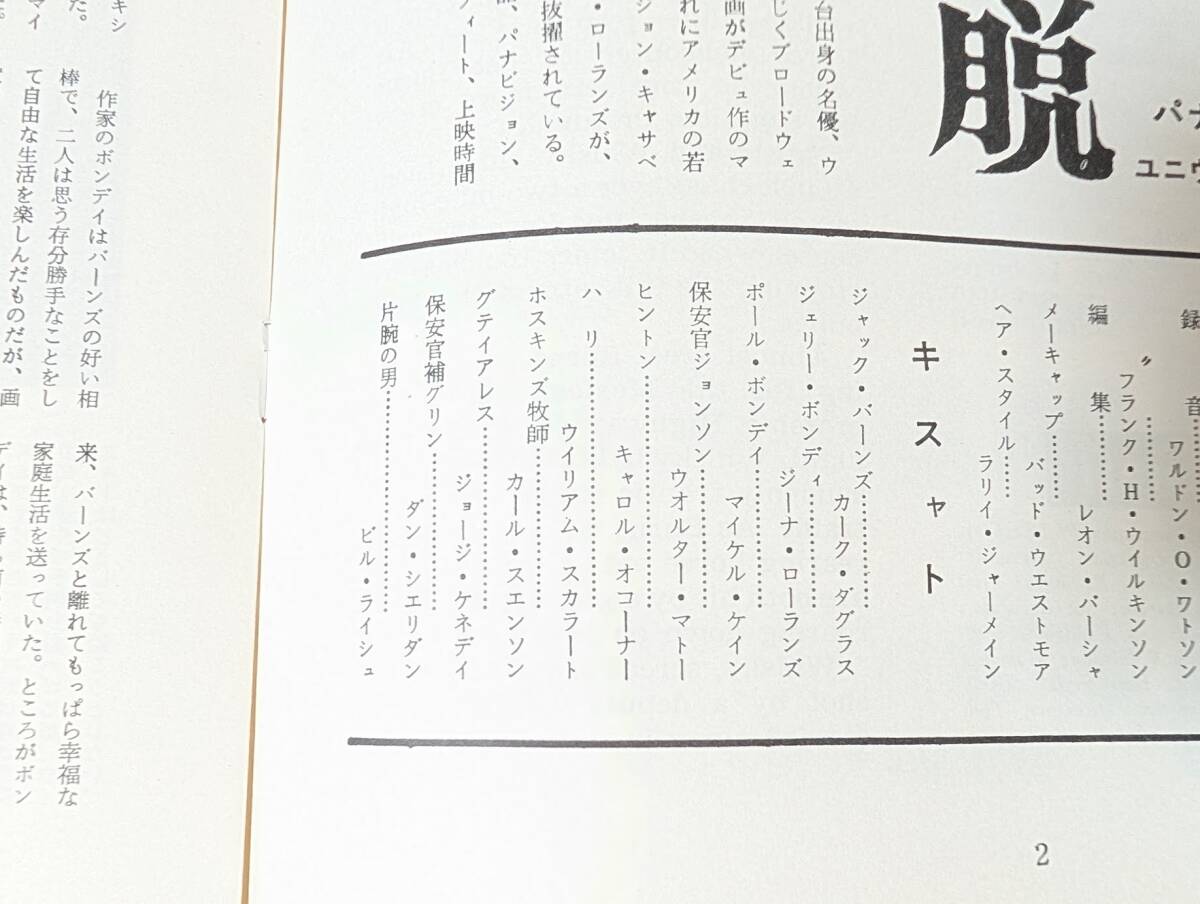 脱
パナ
ユニヴ
台出身の名優、ウ
じくブロードウェ
画がデビュ作のマ
れにアメリカの若
ジョン・キャサベ
・ローランズが、
抜擢されている。
、パナビジョン、
フィート、上映時間
録音……ワルドン・O・ワトソン
〃……フランク・H・ウイルキンソン
編集……レオン・バーシャ
メーキャップ……バッド・ウエストモア
ヘア・スタイル……ラリイ・ジャーメイン
キャスト
ジャック・バーンズ……カーク・ダグラス
ジェリー・ボンディ……ジーナ・ローランズ
ポール・ボンデイ……マイケル・ケイン
保安官ジョンソン……ウオルター・マトー
ヒントン……キャロル・オコーナー
ハリ……ウイリアム・スカラート
ホスキンズ牧師……カール・スエンソン
グテイアレス……ジョージ・ケネデイ
保安官補グリン……ダン・シエリダン
片腕の男……ビル・ライシュ
2
キシ
た。
マイ
作家のボンデイはバーンズの好い相
棒で、二人は思う存分勝手なことをし
て自由な生活を楽しんだものだが、画
来、バーンズと離れてもっぱら幸福な
家庭生活を送っていた。ところがボン
デイは、